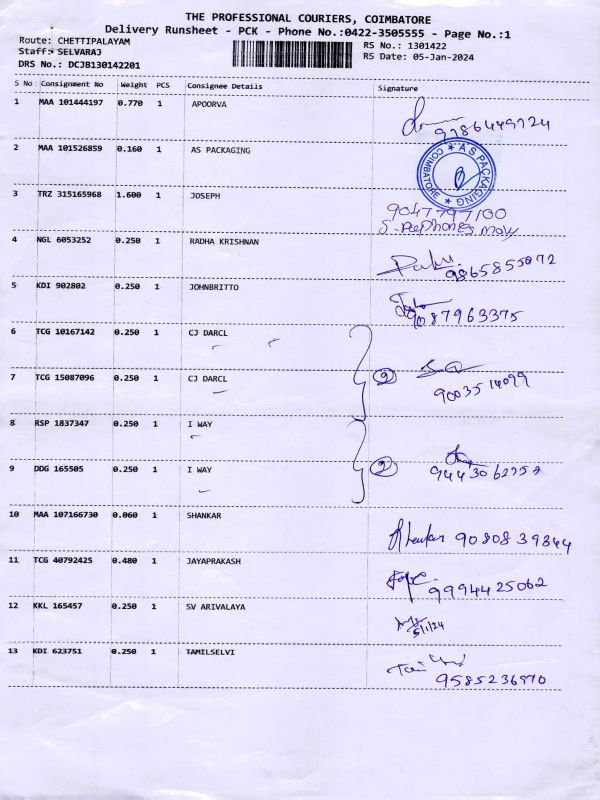 THE PROFESSIONAL COURIERS, COIMBATORE
Delivery Runsheet - PCK - Phone No.:0422-3505555 - Page No.:1
Route: CHETTIPALAYAM RS No.: 1301422
Staff: SELVARAJ RS Date: 05-Jan-2024
DRS No.: DCJB130142201
S No Consignment No Weight PCS Consignee Details Signature
1 MAA 101444197 0.770 1 APOORVA
9786449724
2 MAA 101526859 0.160 1 AS PACKAGING
★ A S PACKAGING ★ COIMBATORE
3 TRZ 315165968 1.600 1 JOSEPH
9047797100
4 NGL 6053252 0.250 1 RADHA KRISHNAN
9865855072
5 KDI 902802 0.250 1 JOHNBRITTO
9087963375
6 TCG 10167142 0.250 1 CJ DARCL
7 TCG 15087096 0.250 1 CJ DARCL 2
9003514099
8 RSP 1837347 0.250 1 I WAY
9 DDG 165505 0.250 1 I WAY 2
10 MAA 107166730 0.060 1 SHANKAR
Shankar 9080839344
11 TCG 40792425 0.480 1 JAYAPRAKASH
9994425062
12 KKL 165457 0.250 1 SV ARIVALAYA
5/1/24
13 KDI 623751 0.250 1 TAMILSELVI
9585236970